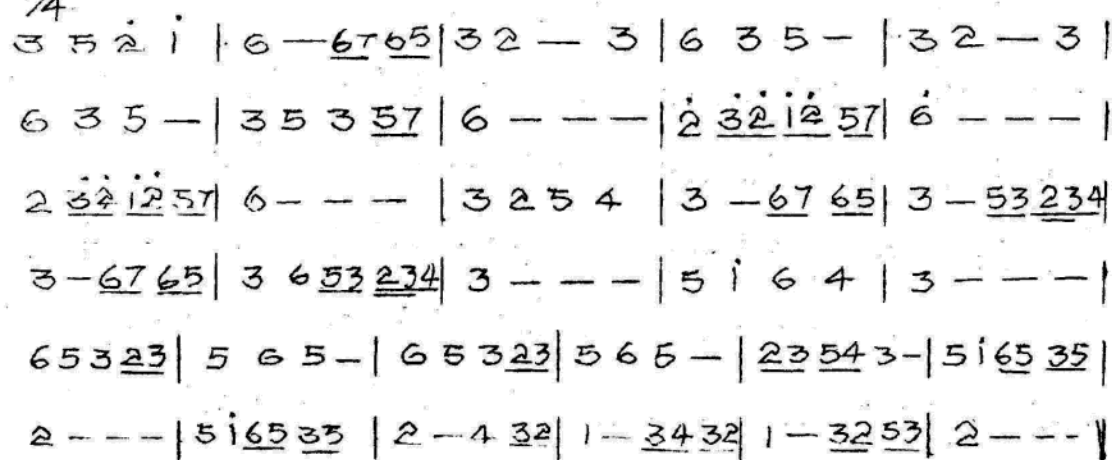 /4
3 5 2̇ i̇ | 6 — 6̲7̲ 6̲5̲ | 3 2 — 3 | 6 3 5 – | 3 2 — 3 |
6 3 5 — | 3 5 3 5̲7̲ | 6 – – – | 2̇ 3̲̇2̲̇ 1̲̇2̲̇ 5̲7̲ | 6̇ – – – |
2 3̲̇2̲̇ 1̲̇2̲̇ 5̲7̲ | 6 – – – | 3 2 5 4 | 3 – 6̲7̲ 6̲5̲ | 3 – 5̲3̲ 2̳3̳4̲ |
3 – 6̲7̲ 6̲5̲ | 3 6 5̲3̲ 2̳3̳4̲ | 3 – – – | 5 i̇ 6 4 | 3 – – – |
6 5 3 2̲3̲ | 5 6 5 – | 6 5 3 2̲3̲ | 5 6 5 – | 2̲3̲ 5̲4̲ 3 – | 5 i̇ 6̲5̲ 3̲5̲ |
2 – – – | 5 i̇ 6̲5̲ 3̲5̲ | 2 – 4 3̲2̲ | 1 – 3̲4̲ 3̲2̲ | 1 – 3̲2̲ 5̲3̲ | 2 – – – ‖